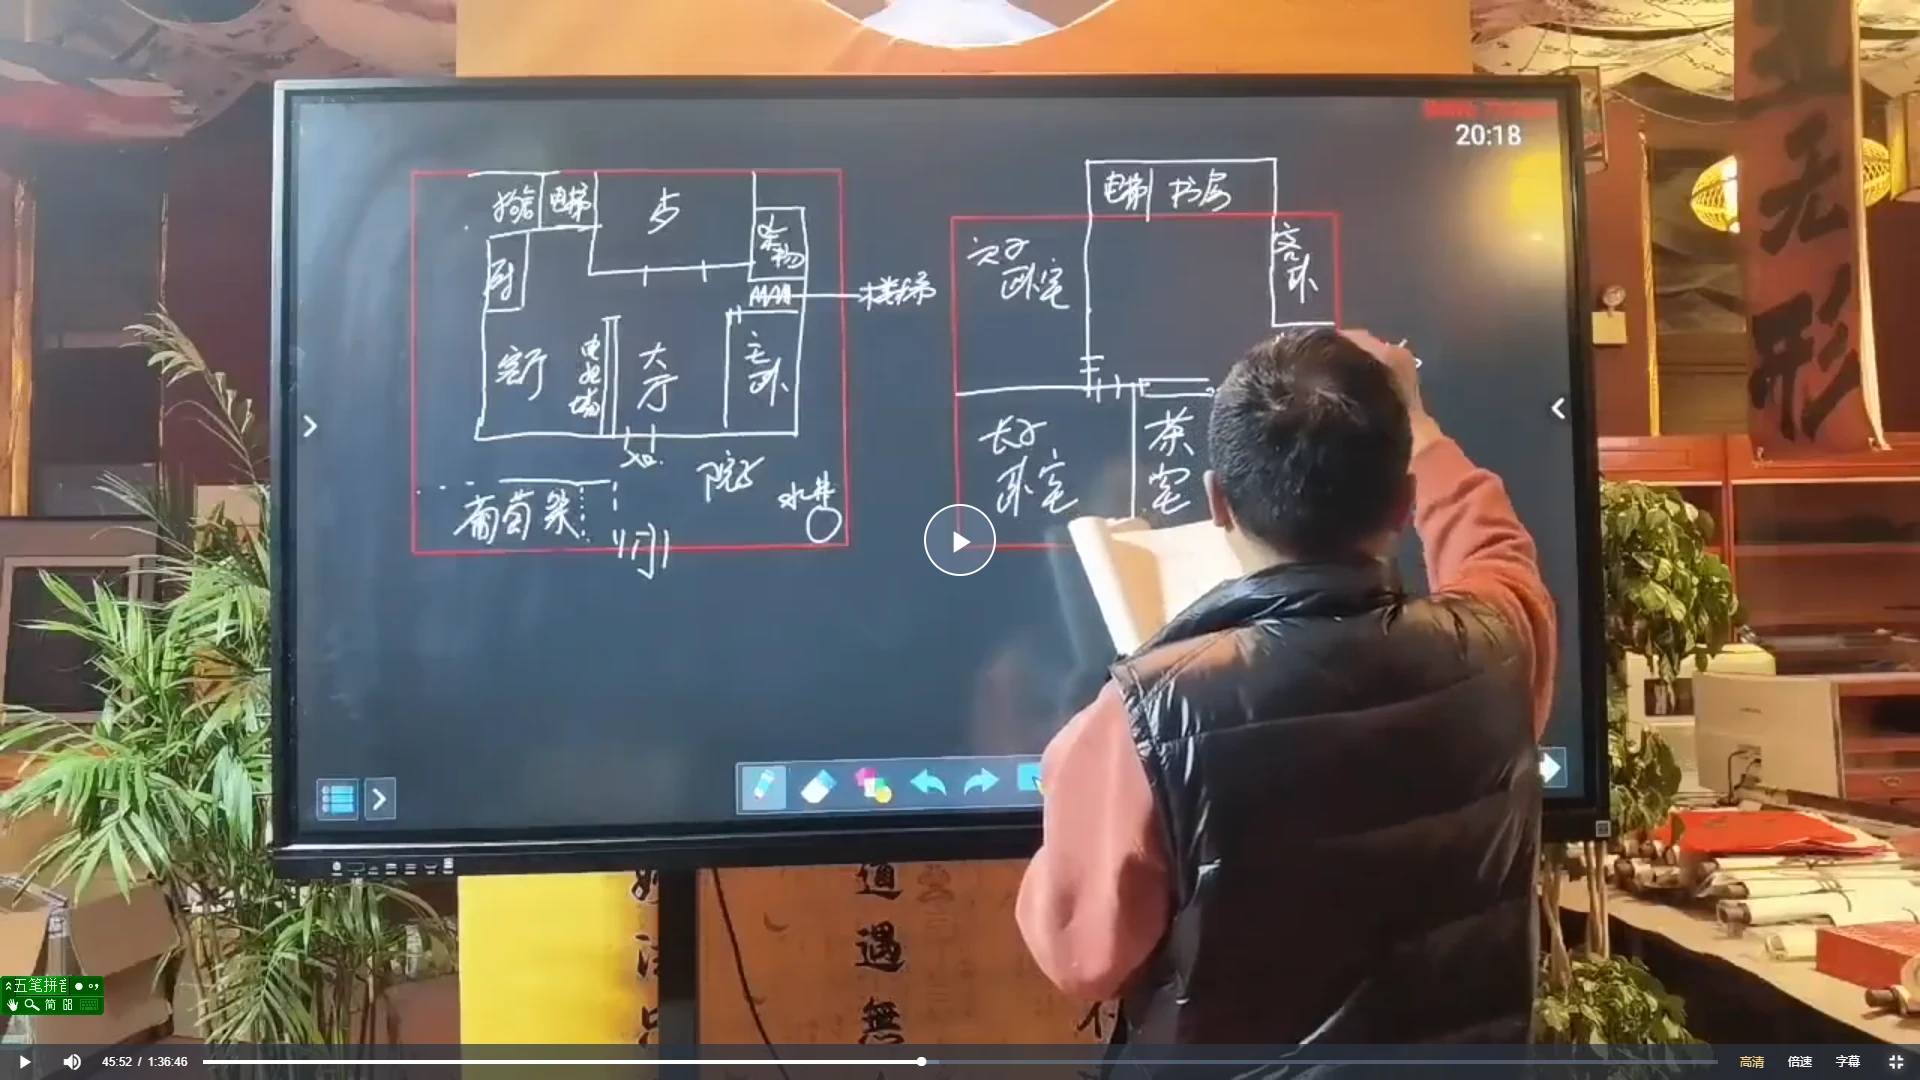 20:18
狗舍
电梯
厨
杂物
楼梯
客厅
电视墙
大厅
主卧
院子
水井
葡萄架
门
电梯
书房
次子
卧室
客卧
长子
卧室
茶室
无形
道遇無
五笔拼音
简
45:52 / 1:36:46
高清
倍速
字幕